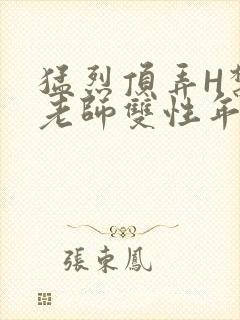 猛烈頂弄H
老師雙性年
張東鳳